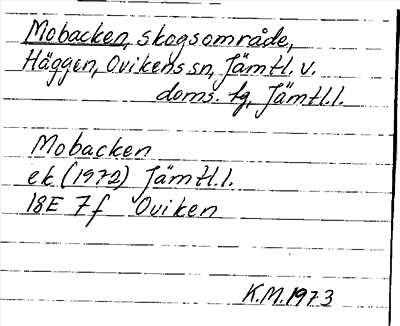 Mobacken, skogsområde,
Häggen, Ovikens sn, Jämtl. v.
doms. tg, Jämtl.l.
Mobacken
ek (1972) Jämtl.l.
18E 7f Oviken
K.M.1973